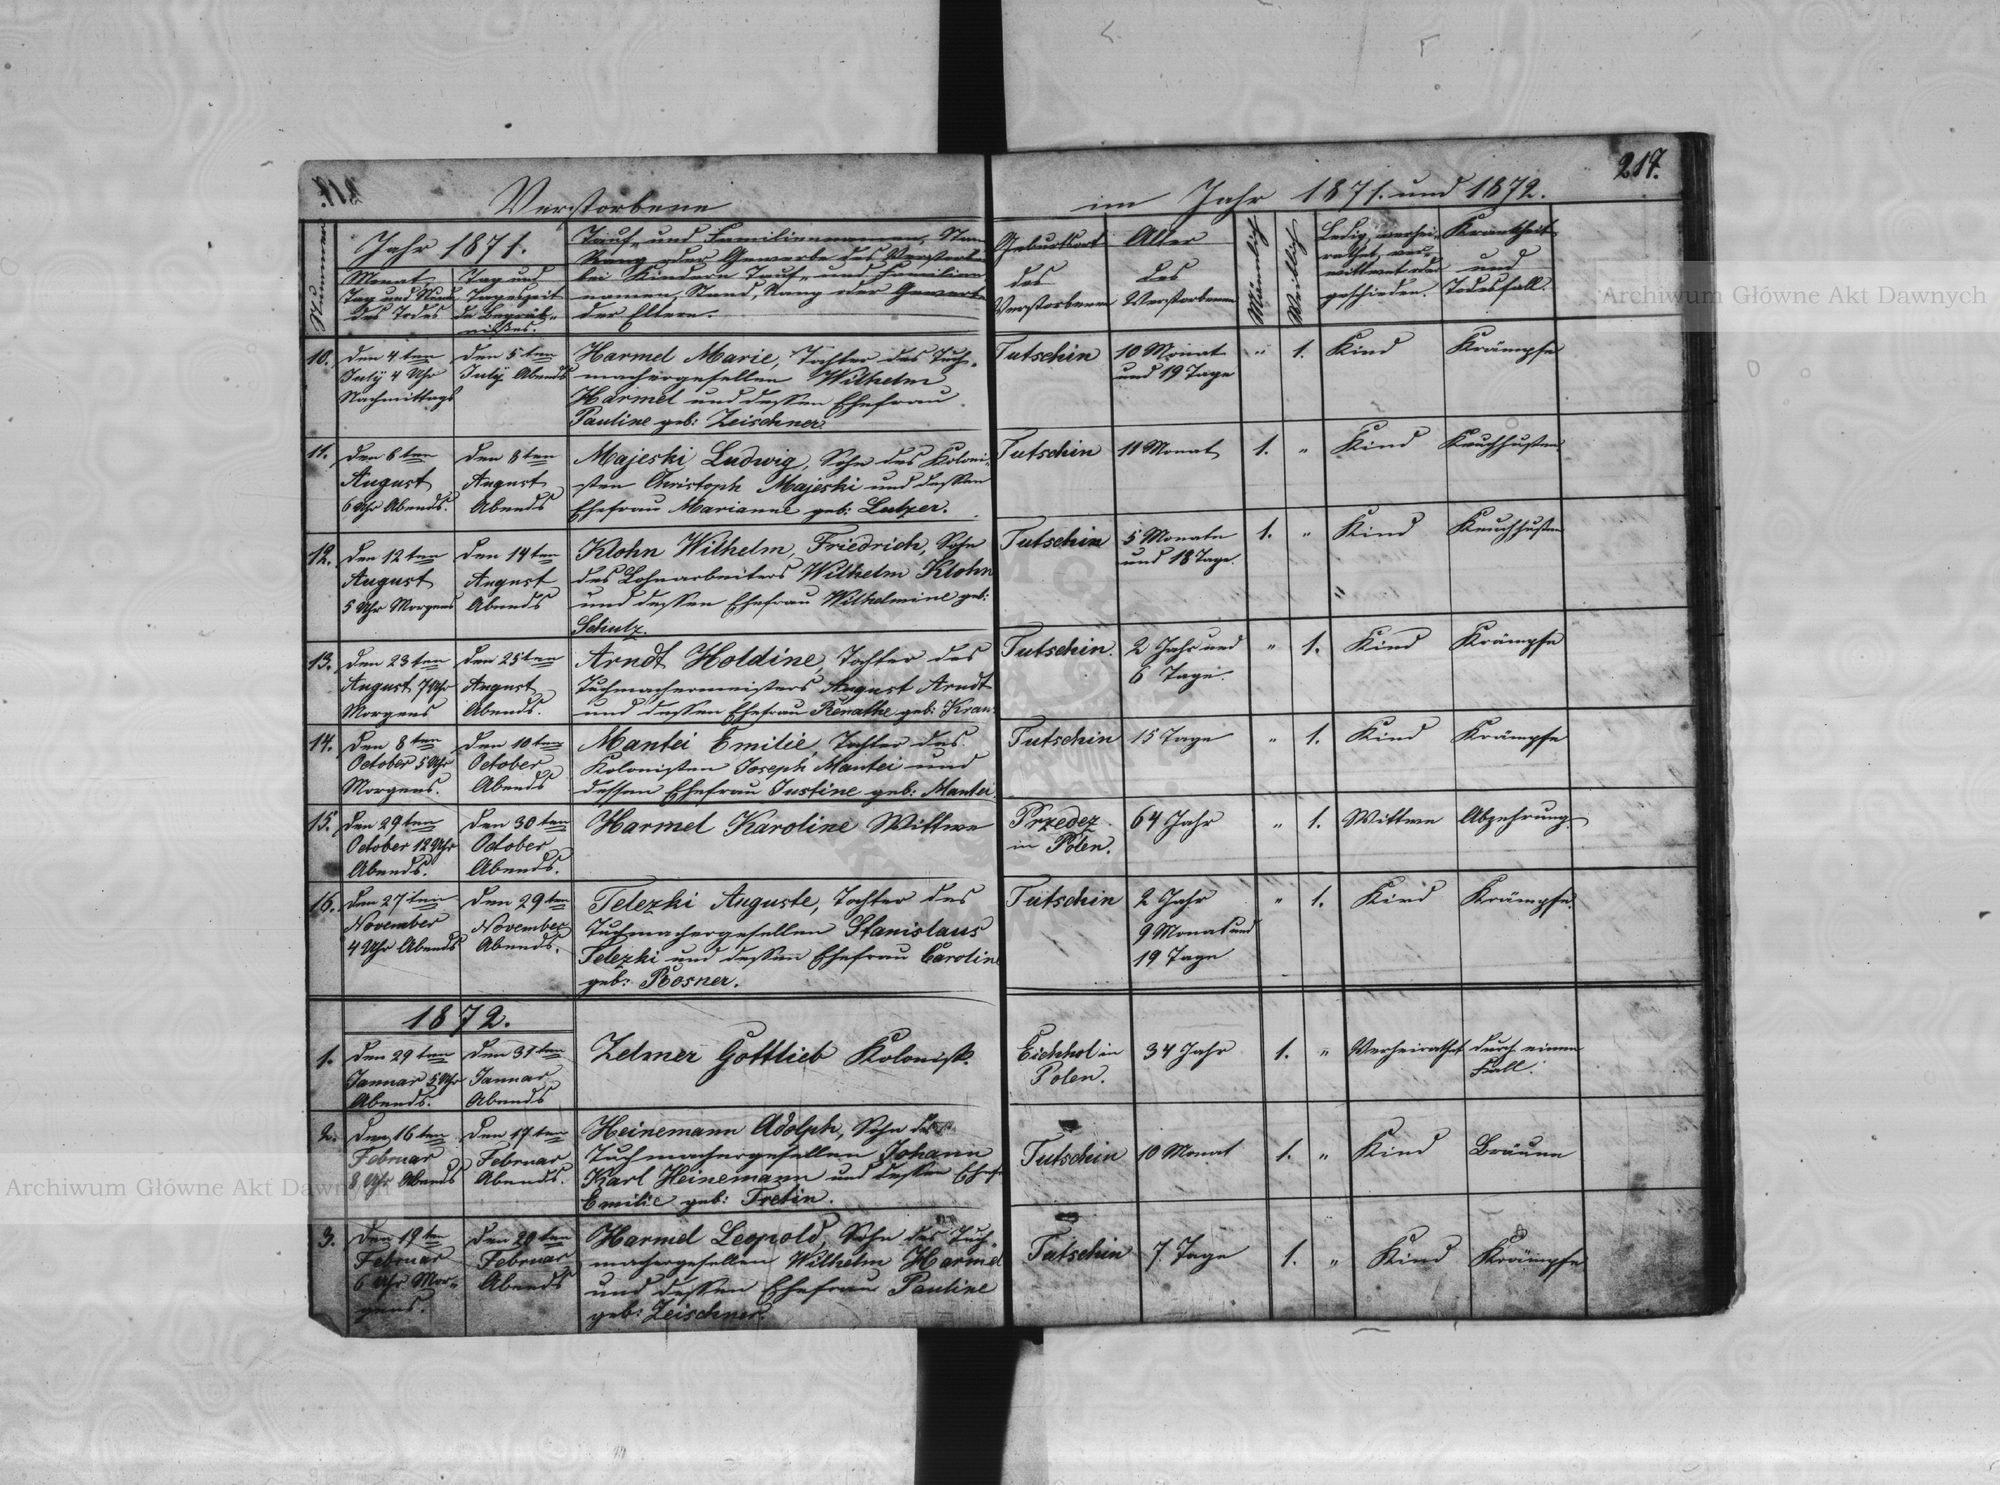 217.
Verstorbene im Jahr 1871. und 1872.
Nummer
Jahr 1871.
Monat,
Tag und Stunde
des Todes
Tag und
Tageszeit
des Begräb-
nißes.
Tauf- und Familiennamen, Stand
Rang oder Gewerbe des Verstorbenen
bei Kindern Tauf- und Familien
namen, Stand, Rang oder Gewerbe
der Eltern.
Geburtsort
des
Verstorbenen
Alter
des
Verstorbenen
Männlich
Weiblich
Ledig, verhei-
rathet, ver-
wittwet oder
geschieden.
Krankheit
und
Todesfall.
10.
den 4ten
July 4 Uhr
Nachmittags
den 5ten
July Abends
Harmel Marie, Tochter des Tuch-
machergesellen Wilhelm
Harmel und dessen Ehefrau
Pauline geb: Zeischner.
Tutschin
10 Monat
und 19 Tage
" 1.
Kind
Krämpfe
11.
den 6ten
August
6 Uhr Abends.
den 8ten
August
Abends
Majeski Ludwig, Sohn des Koloni-
sten Christoph Majeski und dessen
Ehefrau Marianne geb: Lutzer.
Tutschin
11 Monat
1. "
Kind
Keuchhusten
12.
den 12ten
August
5 Uhr Morgens
den 14ten
August
Abends
Klohn Wilhelm, Friedrich, Sohn
des Lohnarbeiters Wilhelm Klohn
und dessen Ehefrau Wilhelmine geb:
Schulz.
Tutschin
5 Monate
und 18 Tage.
1. "
Kind
Keuchhusten
"
13.
den 23ten
August 7 Uhr
Morgens
den 25ten
August
Abends.
Arndt Holdine, Tochter des
Tuchmachermeisters August Arndt
und dessen Ehefrau Renathe geb: Kran
Tutschin.
2 Jahr und
6 Tage.
" 1.
Kind
Krämpfe
14.
den 8ten
October 5 Uhr
Morgens.
den 10ten
October
Abends
Mantei Emilie, Tochter des
Kolonisten Joseph Mantei und
dessen Ehefrau Justine geb: Mantei.
Tutschin
15 Tage
" 1.
Kind
Krämpfe
15.
den 29ten
October 12 Uhr
Abends.
den 30ten
October
Abends.
Harmel Karoline Wittwe
Przedez
in Polen.
64 Jahr
" 1.
Wittwe
Abzehrung.
16.
den 27ten
November
4 Uhr Abends
den 29ten
November
Abends.
Telezki Auguste, Tochter des
Tuchmachergesellen Stanislaus
Telezki und dessen Ehefrau Caroline
geb: Rosner.
Tutschin
2 Jahr
9 Monat und
19 Tage
" 1.
Kind
Krämpfe.
1872.
1.
den 29ten
Januar 5 Uhr
Abends.
den 31ten
Januar
Abends
Zelmer Gottlieb Kolonist.
Eichhol in
Polen.
34 Jahr
1. "
Verheirathet
durch einen
Fall.
2.
den 16ten
Februar
8 Uhr Abends
den 17ten
Februar
Abends.
Heinemann Adolph, Sohn des
Tuchmachergesellen Johann
Karl Heinemann und dessen Ehefr
Emilie geb: Fretin.
Tutschin
10 Monat
1. "
Kind
Bräune
3.
den 19ten
Februar
6 Uhr Mor-
gens.
den 20ten
Februar
Abends
Harmel Leopold, Sohn des Tuch-
machergesellen Wilhelm Harmel
und dessen Ehefrau Pauline
geb: Zeischner.
Tutschin
7 Tage
1. "
Kind
Krämpfe
Archiwum Główne Akt Dawnych
Archiwum Główne Akt Dawnych